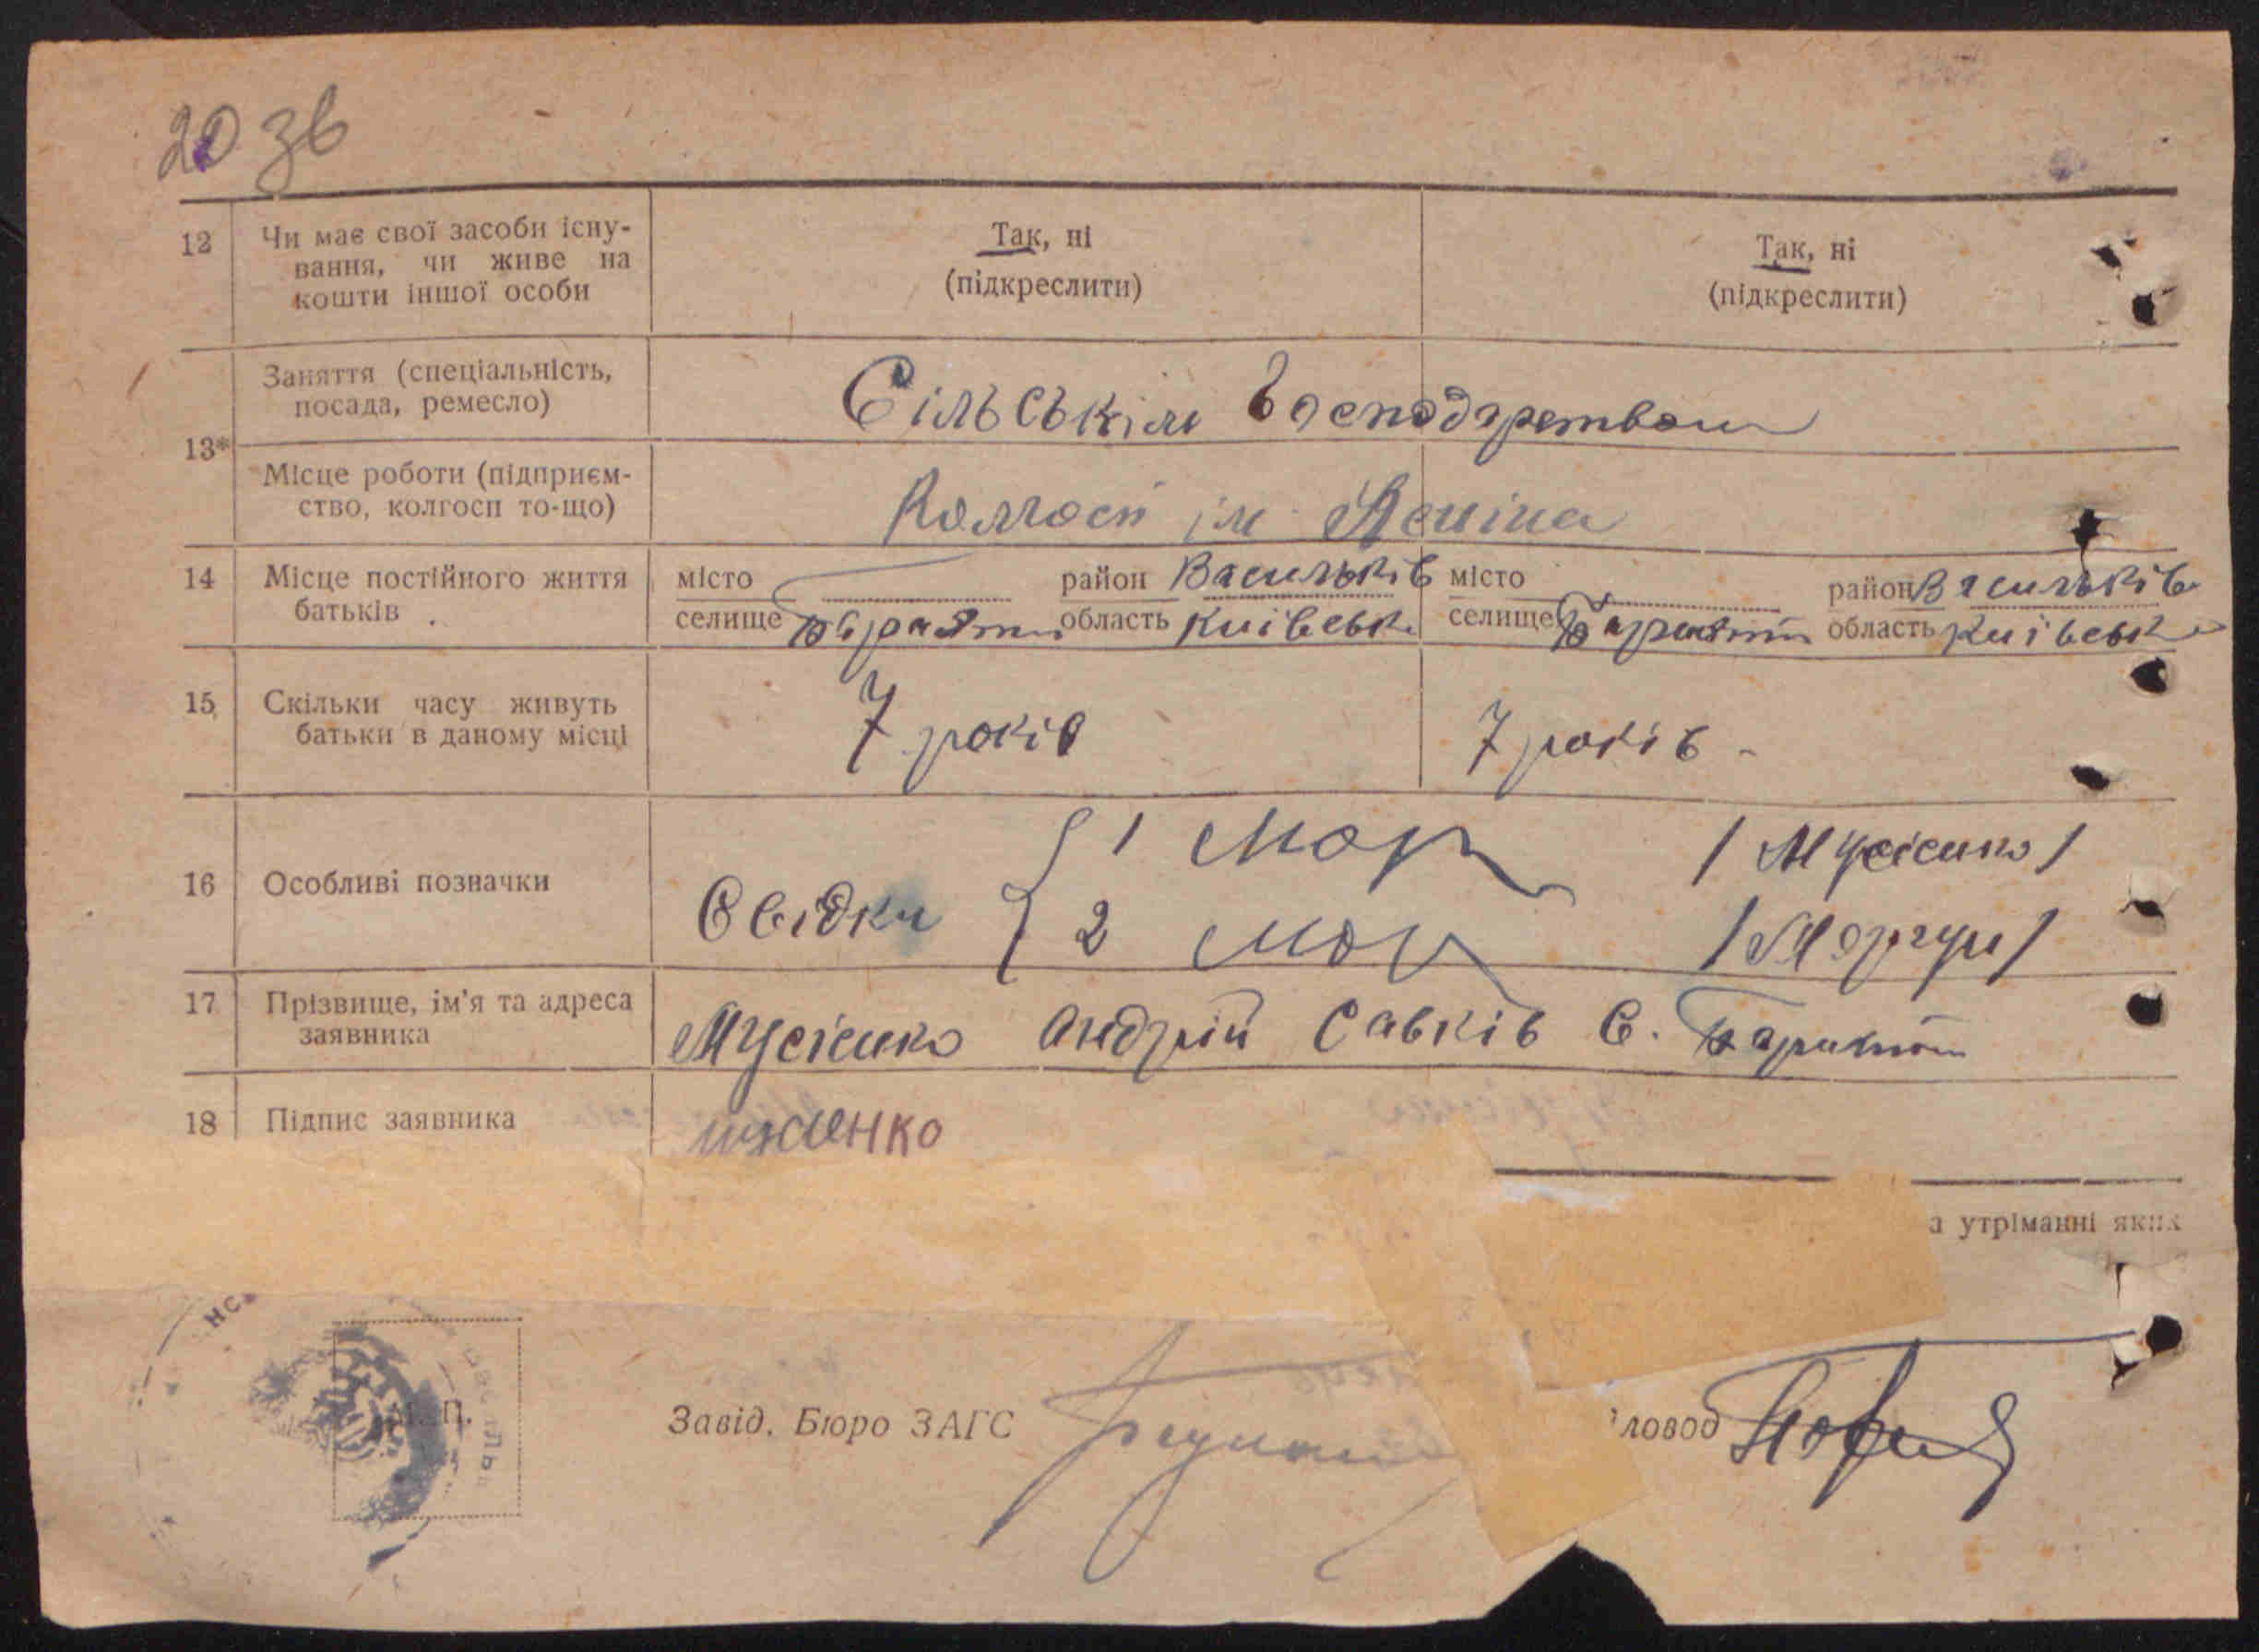 20 зв
12 Чи має свої засоби існу-
вання, чи живе на
кошти іншої особи
Так, ні
(підкреслити)
Так, ні
(підкреслити)
13*
Заняття (спеціальність,
посада, ремесло)
Сільськім Господарством
Місце роботи (підприєм-
ство, колгосп то-що)
Колгосп ім Леніна
14 Місце постійного життя
батьків
місто район Васильків
селище область Київськ
місто район Васильків
селище область Київськ
15 Скільки часу живуть
батьки в даному місці
7 років
7 років
16 Особливі позначки
Свідки
1 Мор /Мусієнко/
2 Мор /Моргун/
17 Прізвище, ім'я та адреса
заявника
Мусієнко Андрій Савків С.
18 Підпис заявника
а утріманні яких
М. П.
Завід. Бюро ЗАГС
ловод